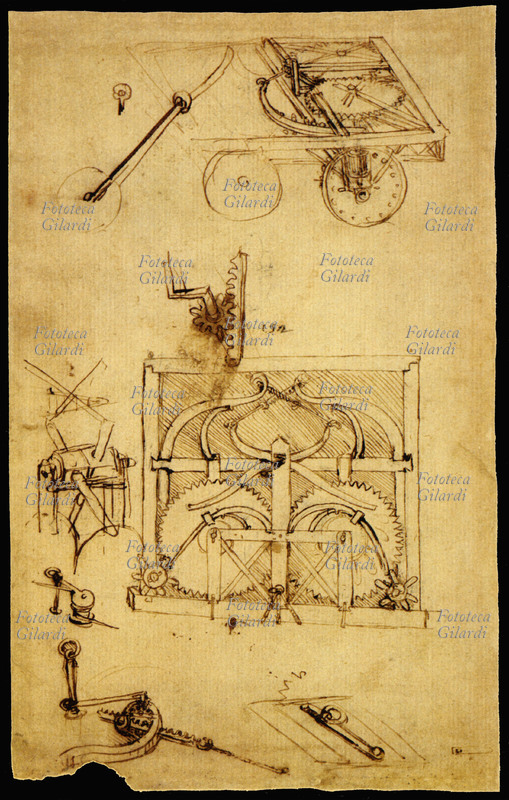 Fototeca
Gilardi
Fototeca
Gilardi
Fototeca
Gilardi
Fototeca
Gilardi
Fototeca
Gilardi
Fototeca
Gilardi
Fototeca
Gilardi
Fototeca
Gilardi
Fototeca
Gilardi
Fototeca
Gilardi
Fototeca
Gilardi
Fototeca
Gilardi
Fototeca
Gilardi
Fototeca
Gilardi
Fototeca
Gilardi
Fototeca
Gilardi
Fototeca
Gilardi
Fototeca
Gilardi
Fototeca
Gilardi